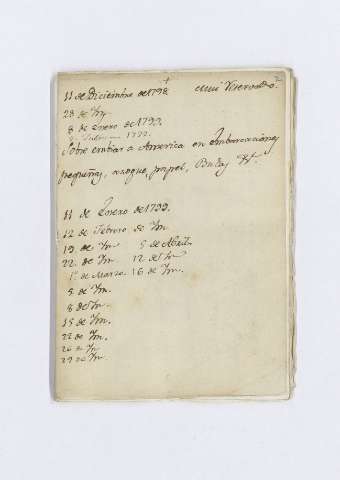 11 de Diciembre de 1798. mui Reservado.
28 de Ym
8 de Enero de 1799.
1799.
Sobre enbiar a America en Embarcaciones
pequeñas, azogue, papel, Bulas &c.
11 de Enero de 1799.
12 de Febrero de Ym
19 de Ym 5 de Abril
22 de Ym 12 de Ym
1º de Marzo 16 de Ym.
5 de Ym.
8 de Ym.
15 de Ym.
22 de Ym.
26 de Ym
29 de Ym